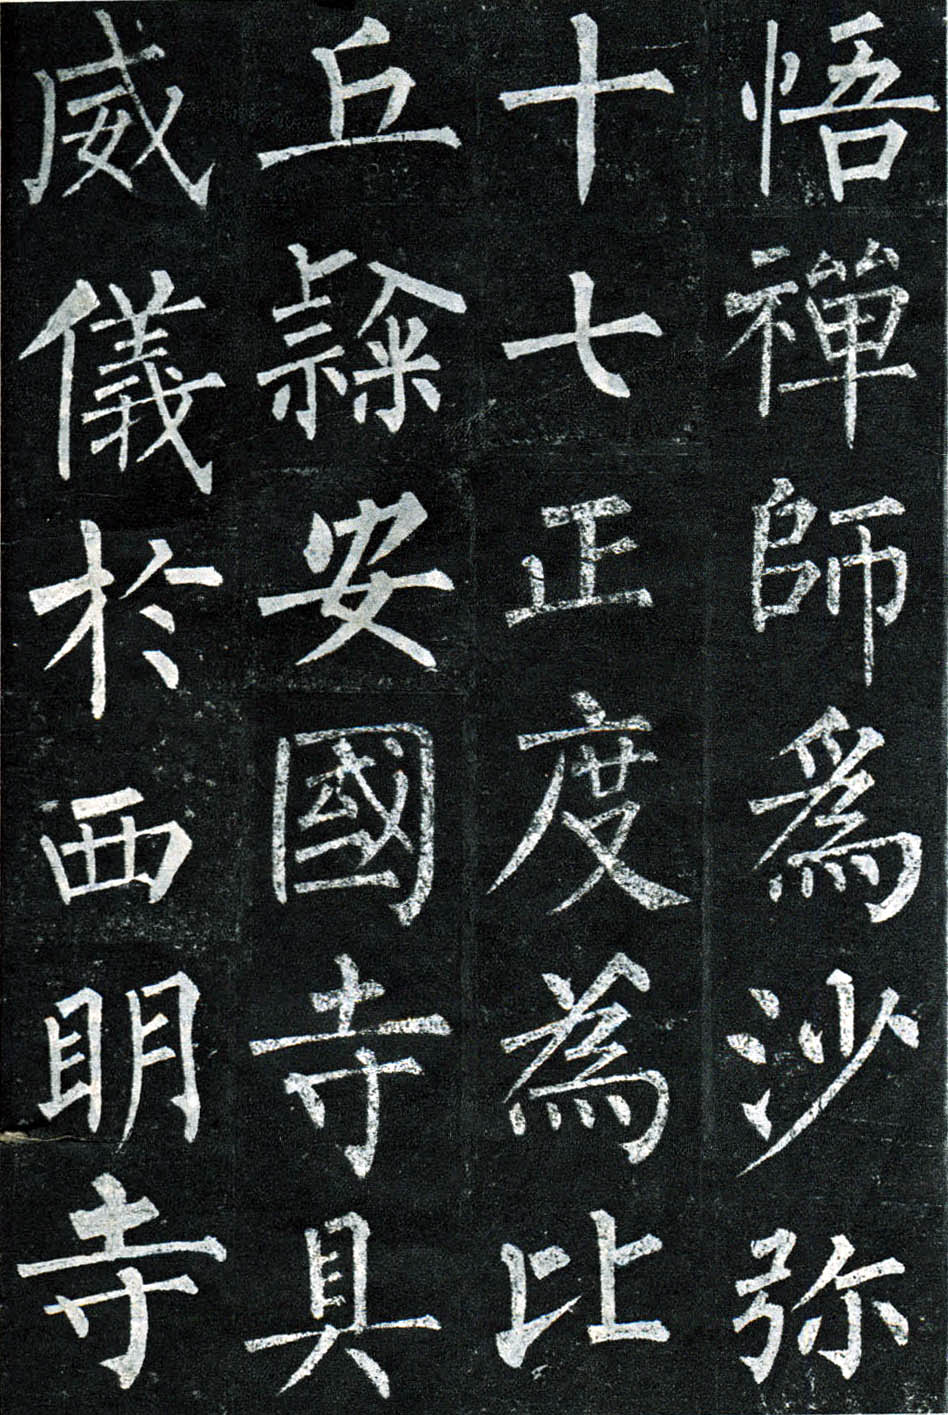 悟禪師為沙弥
十七正度為比
丘𨽻安國寺具
威儀於西明寺